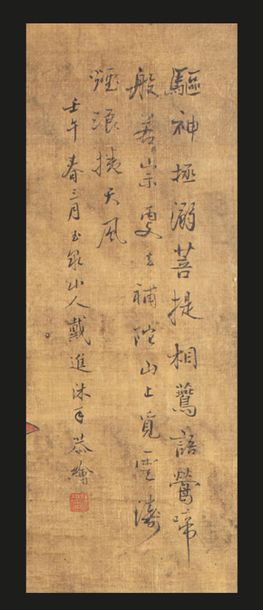 驅神拯溺菩提相鷰語鶯啼
般若宗更去補陀山上覓雪濤
煙浪挾天風
壬午春三月玉泉山人戴進沐手恭繪